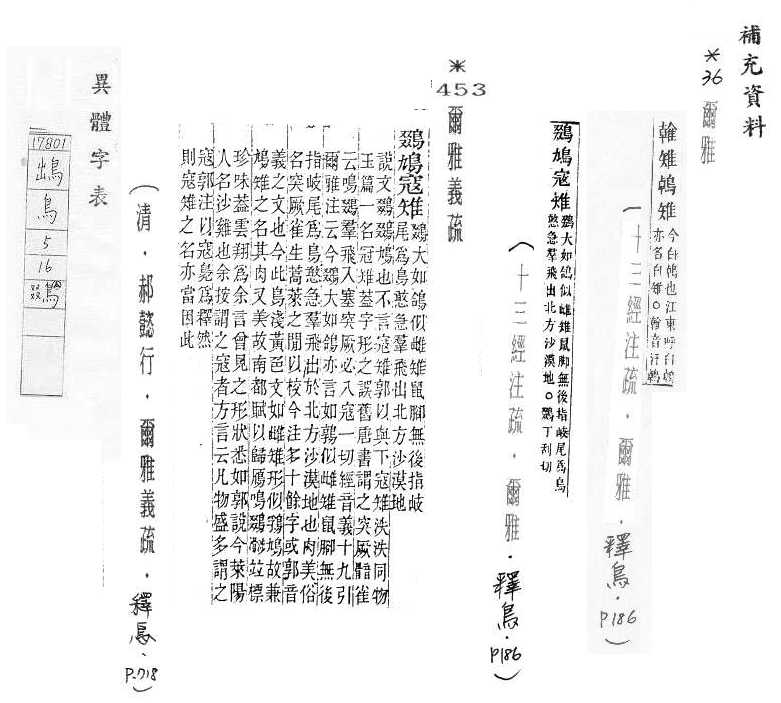 補充資料
*36 爾雅
鶾雉鵫雉 今白鵫也江東呼白鶾
亦名白雉○鶾音汗鵫
(十三經注疏．爾雅．釋鳥．P186)
鵽鳩寇雉 鵽大如鴿似雌雉鼠腳無後指岐尾為鳥
憨急羣飛出北方沙漠地○鵽丁刮切
(十三經注疏．爾雅．釋鳥．P186)
*453 爾雅義疏
鵽鳩寇雉 鵽大如鴿似雌雉鼠腳無後指岐
尾為鳥憨急羣飛出北方沙漠地
說文鵽鵽鳩也不言寇雉郭以與下寇雉泆泆同物
玉篇一名冠雉蓋字形之誤舊唐書謂之突厥雀
云鳴鵽羣飛入塞突厥必入寇一切經音義十九引
爾雅注云今鵽大如鴿亦言如鶉似雌雉鼠腳無後
指岐尾為鳥憨急羣飛出於北方沙漠地也肉美俗
名突厥雀生蒿萊之閒以校今注多十餘字或郭音
義之文也今此鳥淺黃色文如雌雉形似鶉鳩故兼
鳩雉之名其肉又美故南都賦以歸鴈鳴鵽竝標
珍味葢雲翔為余言曾見之形狀悉如郭說今萊陽
人名沙雞也余按謂之寇者方言云凡物盛多謂之
寇郭注以寇鳧為釋然
則寇雉之名亦當因此
(清．郝懿行．爾雅義疏．釋鳥、P.718)
異體字表
17801
鳥
5
16